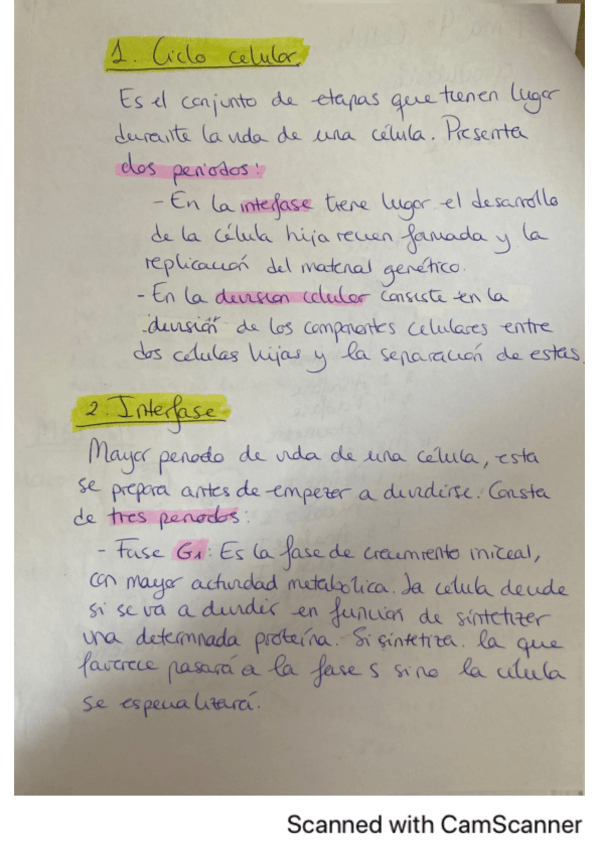 1. Ciclo celular
Es el conjunto de etapas que tienen lugar
durante la vida de una célula. Presenta
dos periodos:
- En la interfase tiene lugar el desarrollo
de la célula hija recien formada y la
replicación del material genético.
- En la division celular consiste en la
division de los componentes celulares entre
dos células hijas y la separación de estas.
2. Interfase
Mayor periodo de vida de una célula, esta
se prepara antes de empezar a dividirse. Consta
de tres periodos:
- Fase G1: Es la fase de crecimiento iniceal,
con mayor actividad metabólica. La celula decide
si se va a dividir en función de sintetizar
una determnada proteína. Si sintetiza. la que
favorece pasará a la fase S sino la celula
se especializará.
Scanned with CamScanner